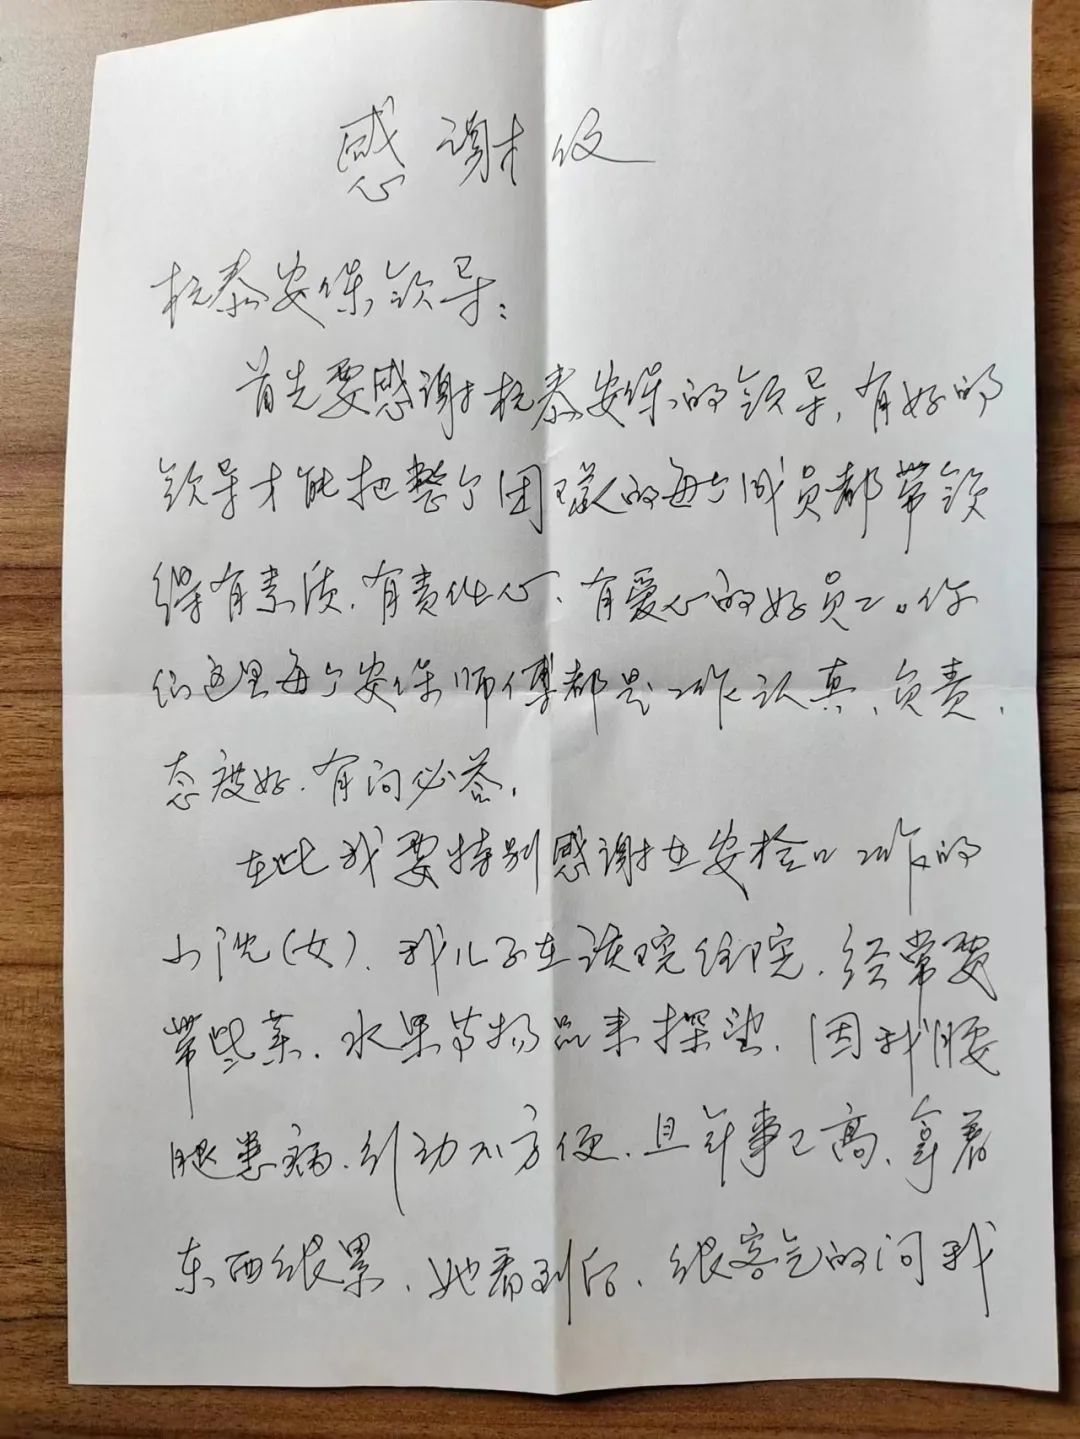 感谢信
杭泰安保领导：
首先要感谢杭泰安保的领导，有好的
领导才能把整个团队的每个成员都带领
得有素质、有责任心、有爱心的好员工。你
们这里每个安保师傅都是工作认真、负责、
态度好、有问必答，
在此我要特别感谢在安检口工作的
小沈（女），我儿子在该院住院，经常要
带些菜、水果等物品来探望，因我腰
腿患病，行动不方便，且年事已高，拿着
东西很累，她看到后，很客气的问我